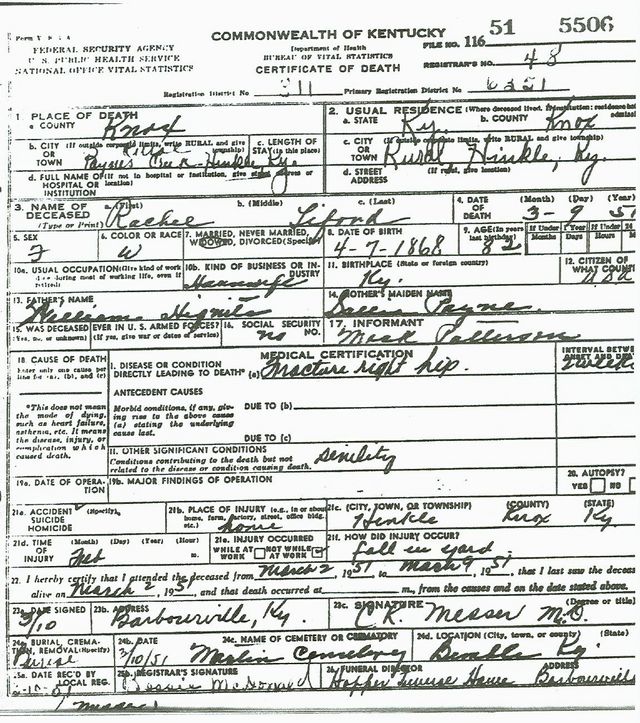 COMMONWEALTH OF KENTUCKY
51 5506
FEDERAL SECURITY AGENCY
U. S. PUBLIC HEALTH SERVICE
NATIONAL OFFICE VITAL STATISTICS
Department of Health
BUREAU OF VITAL STATISTICS
CERTIFICATE OF DEATH
FILE NO. 116
REGISTRAR'S NO. 48
Registration District No 311 Primary Registration District No 6351
1 PLACE OF DEATH
a COUNTY Knox
2. USUAL RESIDENCE (Where deceased lived.
a. STATE Ky. b. COUNTY Knox
b. CITY (If outside corporate limits, write RURAL and give township)
OR TOWN Hinkle, Ky.
c. LENGTH OF STAY (in this place)
c. CITY
OR TOWN Rural, Hinkle, Ky.
d. FULL NAME OF (If not in hospital or institution, give street address or location)
HOSPITAL OR INSTITUTION
d. STREET ADDRESS (If rural, give location)
3. NAME OF DECEASED (Type or Print)
a. (First) Rachel b. (Middle) c. (Last)
4. DATE OF DEATH (Month) (Day) (Year) 3-9 51
5. SEX F
6. COLOR OR RACE W
7. MARRIED, NEVER MARRIED, WIDOWED, DIVORCED (Specify)
8. DATE OF BIRTH 4-7-1868
9. AGE (In years last birthday) 82
If Under 1 Year Months Days
10a. USUAL OCCUPATION (Give kind of work done during most of working life, even if retired)
10b. KIND OF BUSINESS OR INDUSTRY Housewife
11. BIRTHPLACE (State or foreign country) Ky.
12. CITIZEN OF WHAT COUN
13. FATHER'S NAME William
14. MOTHER'S MAIDEN NAME Payne
15. WAS DECEASED EVER IN U. S. ARMED FORCES? (Yes, no, or unknown) (If yes, give war or dates of service)
16. SOCIAL SECURITY NO. no
17. INFORMANT Mack Patterson
18 CAUSE OF DEATH
Enter only one cause per line for (a), (b), and (c)
MEDICAL CERTIFICATION
I. DISEASE OR CONDITION DIRECTLY LEADING TO DEATH* (a) Fracture right hip.
*This does not mean the mode of dying, such as heart failure, asthenia, etc. It means the disease, injury, or complication which caused death.
ANTECEDENT CAUSES
Morbid conditions, if any, giving rise to the above cause (a) stating the underlying cause last.
DUE TO (b)
DUE TO (c)
II. OTHER SIGNIFICANT CONDITIONS
Conditions contributing to the death but not related to the disease or condition causing death. Senility
19a. DATE OF OPERATION
19b. MAJOR FINDINGS OF OPERATION
20. AUTOPSY? YES NO
21a. ACCIDENT (Specify) SUICIDE HOMICIDE
21b. PLACE OF INJURY (e.g., in or about home, farm, factory, street, office bldg. etc.) home
21c. (CITY, TOWN, OR TOWNSHIP) (COUNTY) (STATE)
Hinkle Knox Ky
21d. TIME OF INJURY (Month) (Day) (Year) (Hour) m. Feb
21e. INJURY OCCURRED WHILE AT WORK NOT WHILE AT WORK
21f. HOW DID INJURY OCCUR? fall in yard.
22. I hereby certify that I attended the deceased from March 2, 1951 to March 9, 1951, that I last saw the deceas
alive on March 2, 1951, and that death occurred at m., from the causes and on the date stated above.
23a DATE SIGNED 3/10
23b. ADDRESS Barbourville, Ky.
23c. SIGNATURE (Degree or title) C.R. Messer M.D.
24a BURIAL, CREMATION, REMOVAL (Specify) Burial
24b. DATE 3/10/51
24c. NAME OF CEMETERY OR CREMATORY Cemetery
24d. LOCATION (City, town, or county) (State) Ky
25a. DATE REC'D BY LOCAL REG.
25b. REGISTRAR'S SIGNATURE
26. FUNERAL DIRECTOR ADDRESS
Hopper Funeral Home Barbourville